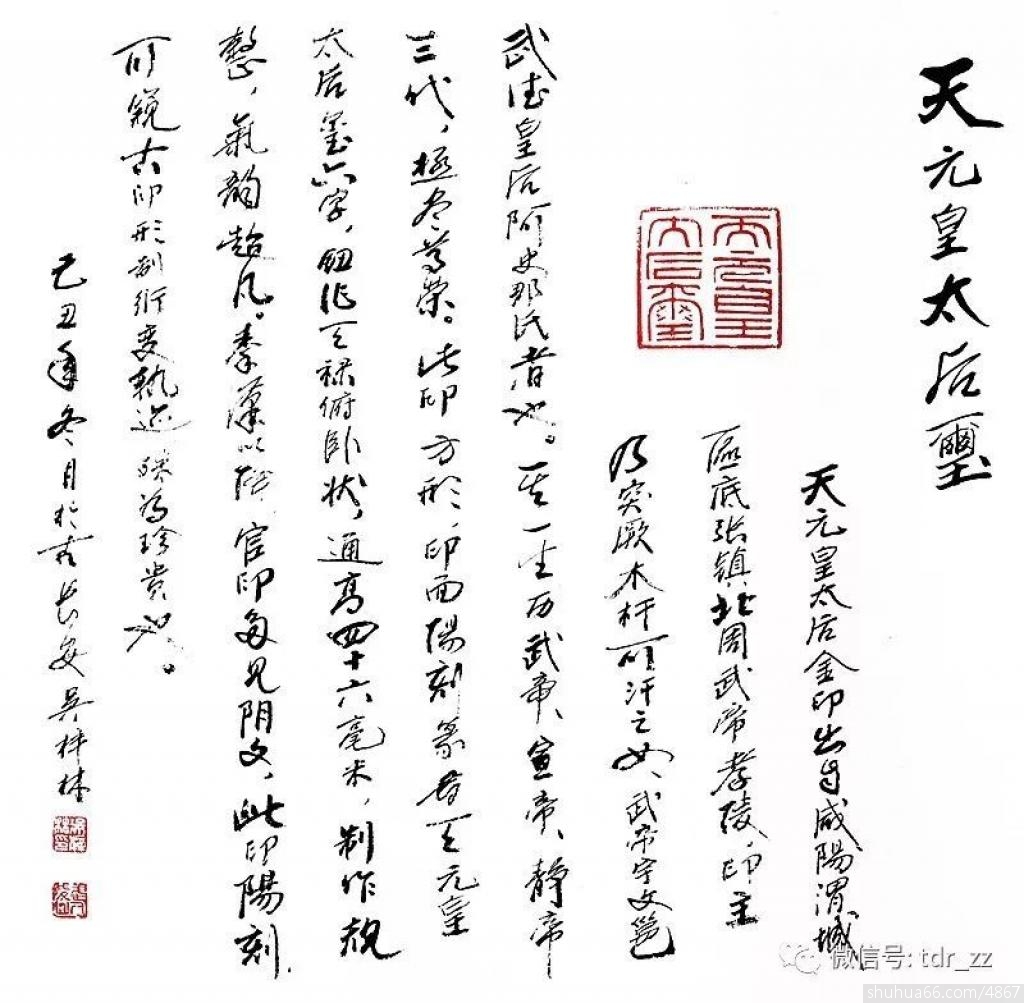 天元皇太后璽
天元皇太后金印出自咸陽渭城
區底张镇北周武帝孝陵,印主
乃突厥木杆可汗之女、武帝宇文邕
武德皇后阿史那氏者也。其一生历武帝、宣帝、静帝
三代,極尽尊荣。此印方形,印面陽刻篆書天元皇
太后璽六字,鈕作天禄俯卧状,通高四十六毫米,制作規
整,氣韵超凡。秦漢以降官印多見阴文,此印陽刻,
可窺古印形制衍变軌迹,殊为珍貴也。
己丑年冬月於古长安吴梓林
天元皇
太后璽
微信号: tdr_zz
shuhua66.com/4867